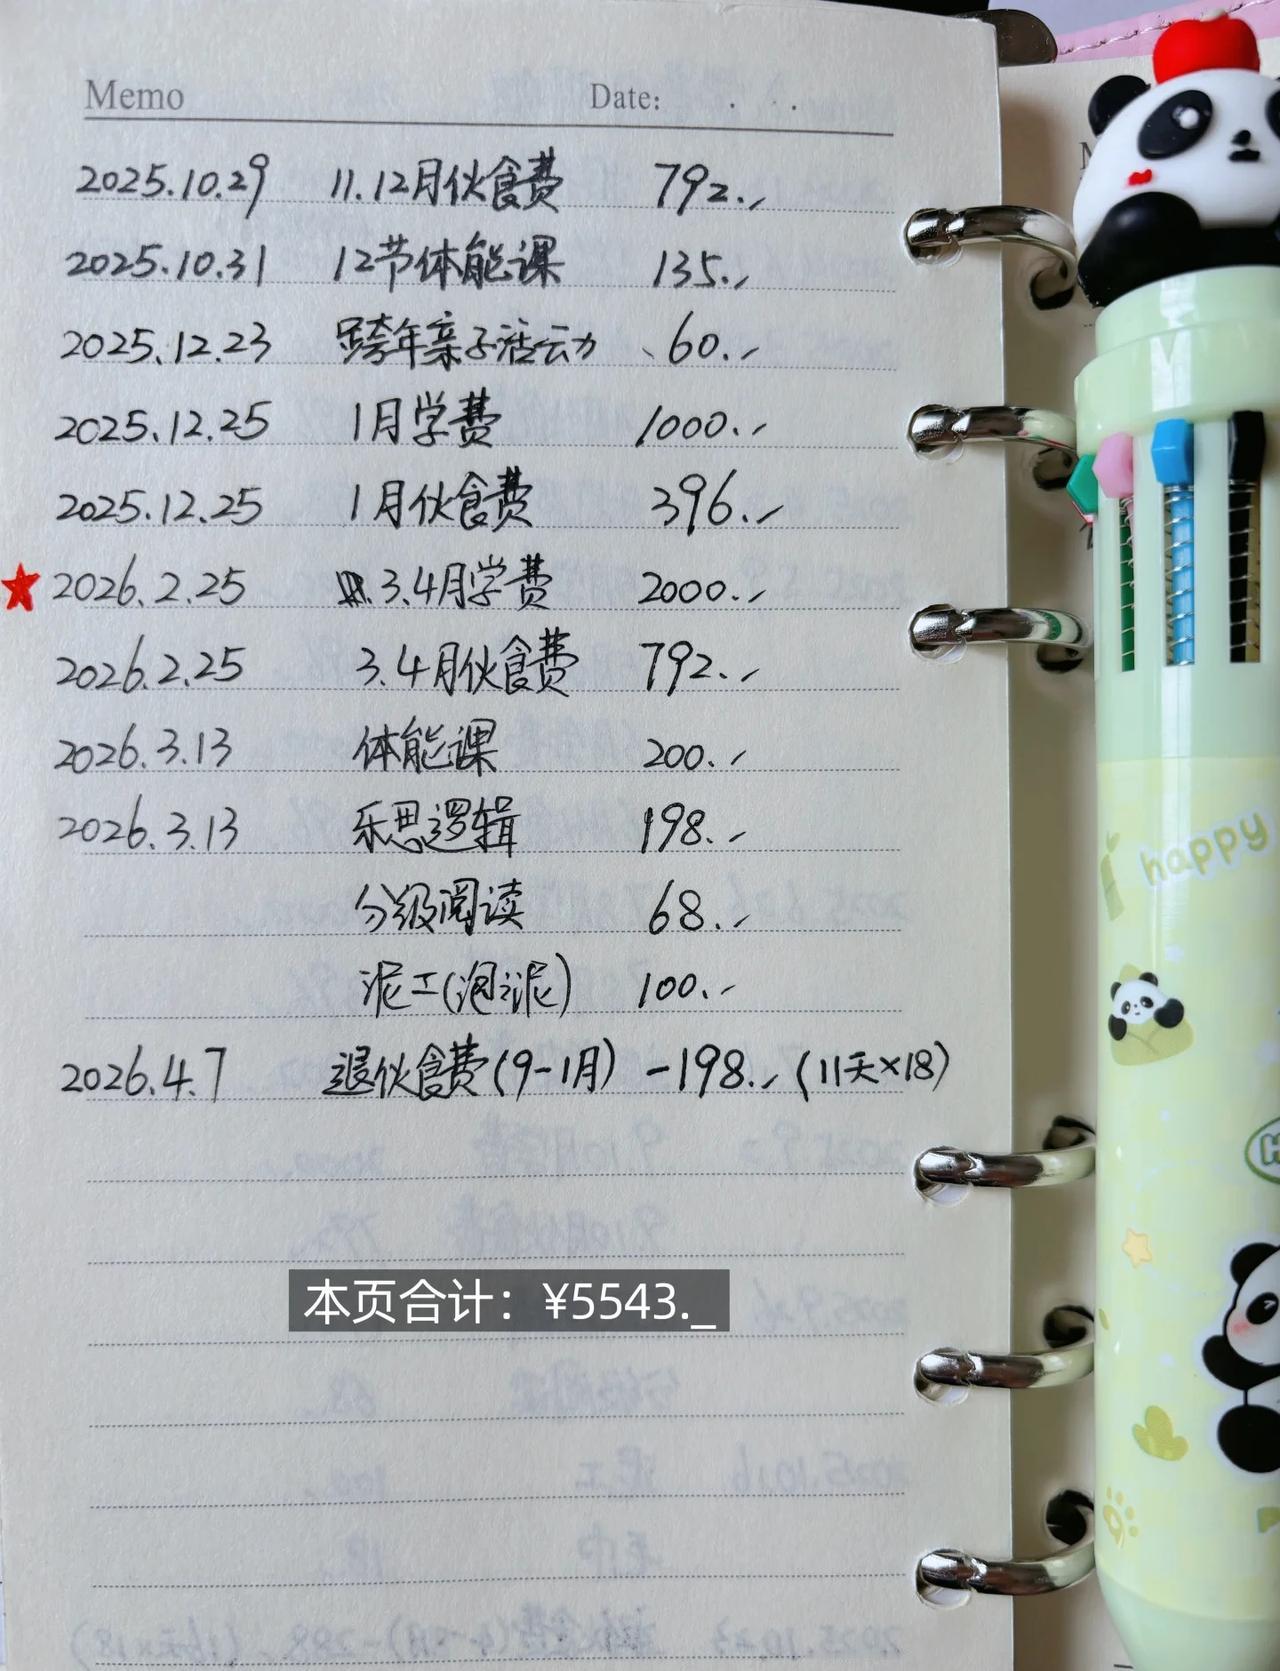 Memo Date: . . .
2025.10.29 11.12月伙食费 792.-
2025.10.31 12节体能课 135.-
2025.12.23 跨年亲子活动 60.-
2025.12.25 1月学费 1000.-
2025.12.25 1月伙食费 396.-
2026.2.25 3.4月学费 2000.-
2026.2.25 3.4月伙食费 792.-
2026.3.13 体能课 200.-
2026.3.13 乐思逻辑 198.-
分级阅读 68.-
泥工(泡泥) 100.-
2026.4.7 退伙食费(9-1月) -198.- (11天×18)
本页合计：¥5543._
happy